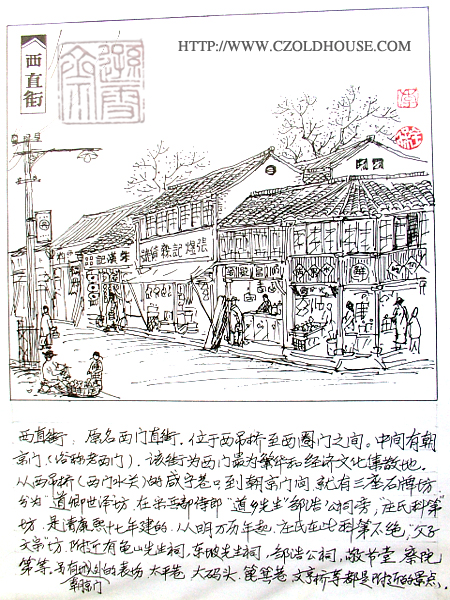 HTTP://WWW.CZOLDHOUSE.COM
西直街
張煜記雜貨號
西直街：原名西门直街．位于西吊桥至西圈门之间。中间有朝
京门（俗称老西门）．该街为西门最为繁华和经济文化集散地．
从西吊桥（西门水关）的咸宁巷口 到朝京门间 就有三座石牌坊．
分为"道卿世泽坊．在宋兵部侍郎"道乡先生"邹浩公祠旁，"庄氏科第"
坊．是清康熙十七年建的．从明万历年起．庄氏在此科第不绝，"父子
文宗"坊．附近有龟山先生祠．东坡先生祠．邹浩公祠，敬节堂．察院
第等．另有城外的表场．太平巷．大码头．篦箕巷 文亨桥等都是附近的景点．
朝京门